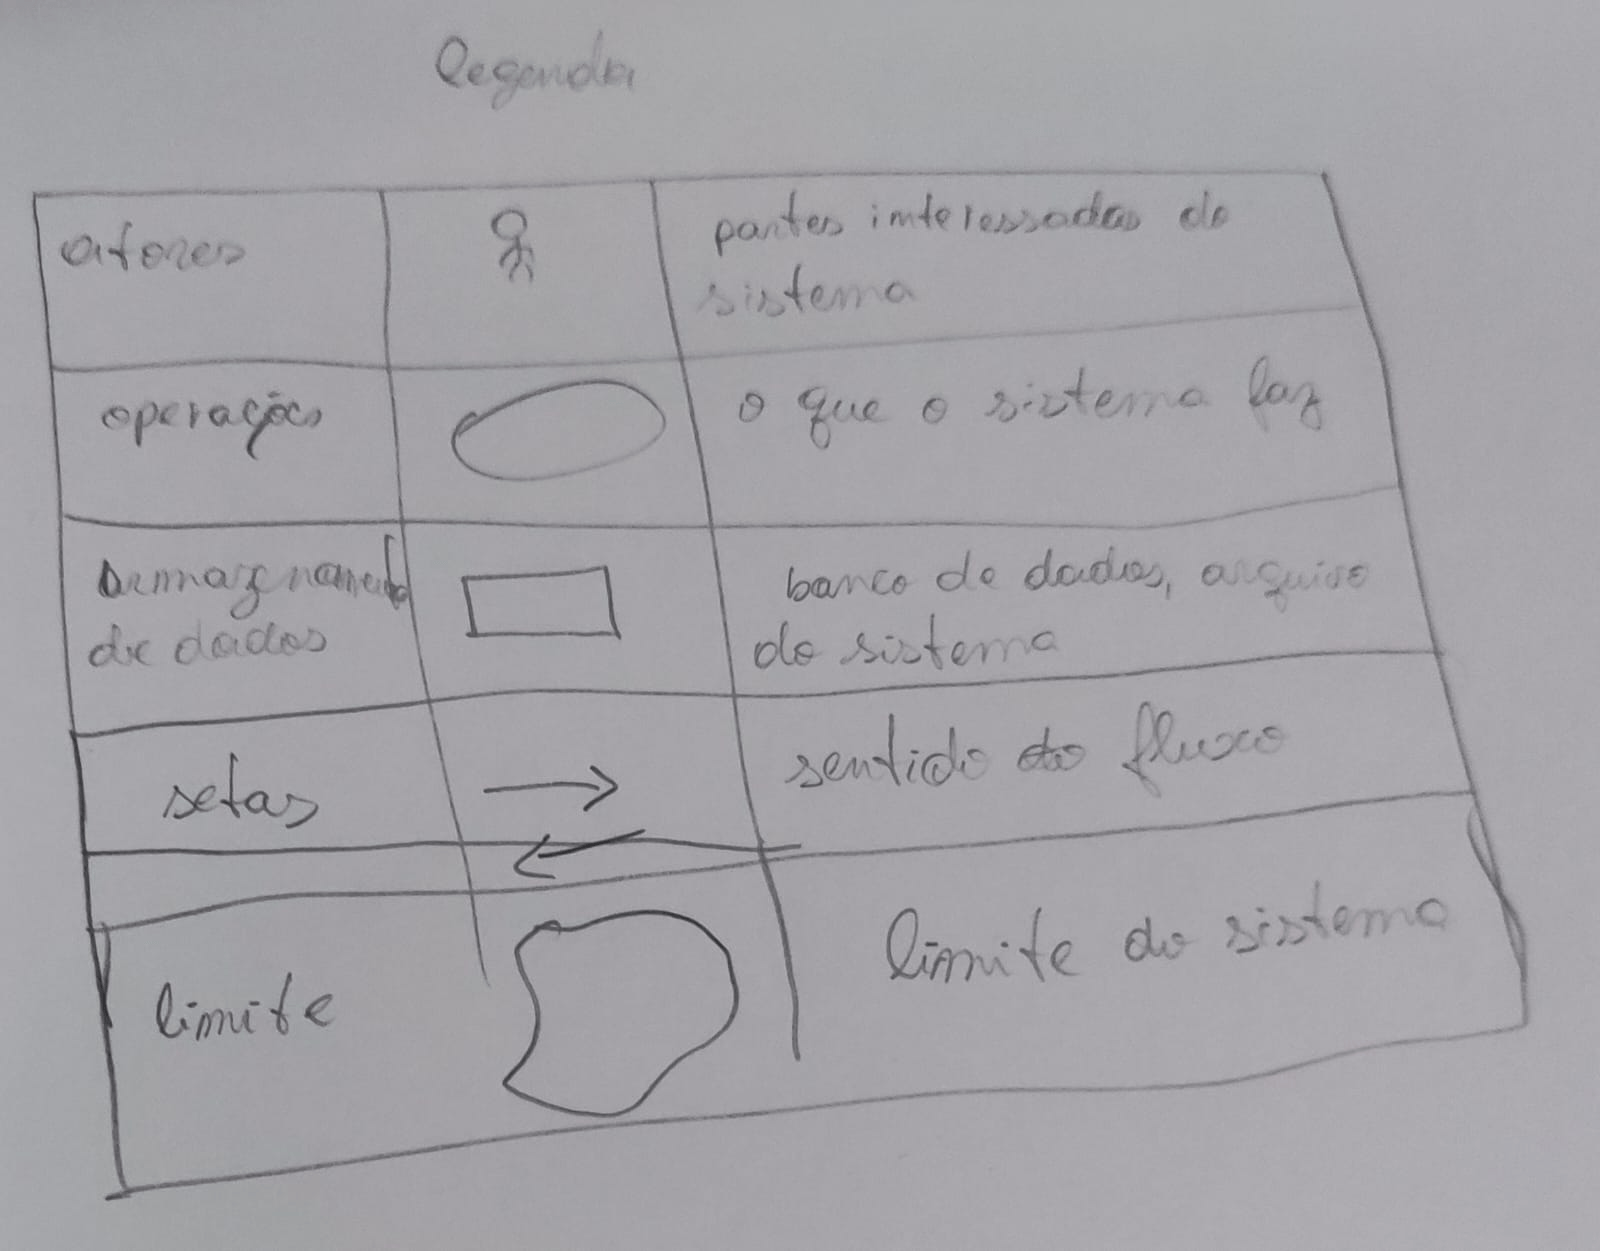 legenda
atores
partes interessadas do
sistema
operações
o que o sistema faz
armazenamento
de dados
banco de dados, arquivo
do sistema
setas
sentido do fluxo
limite
limite do sistema